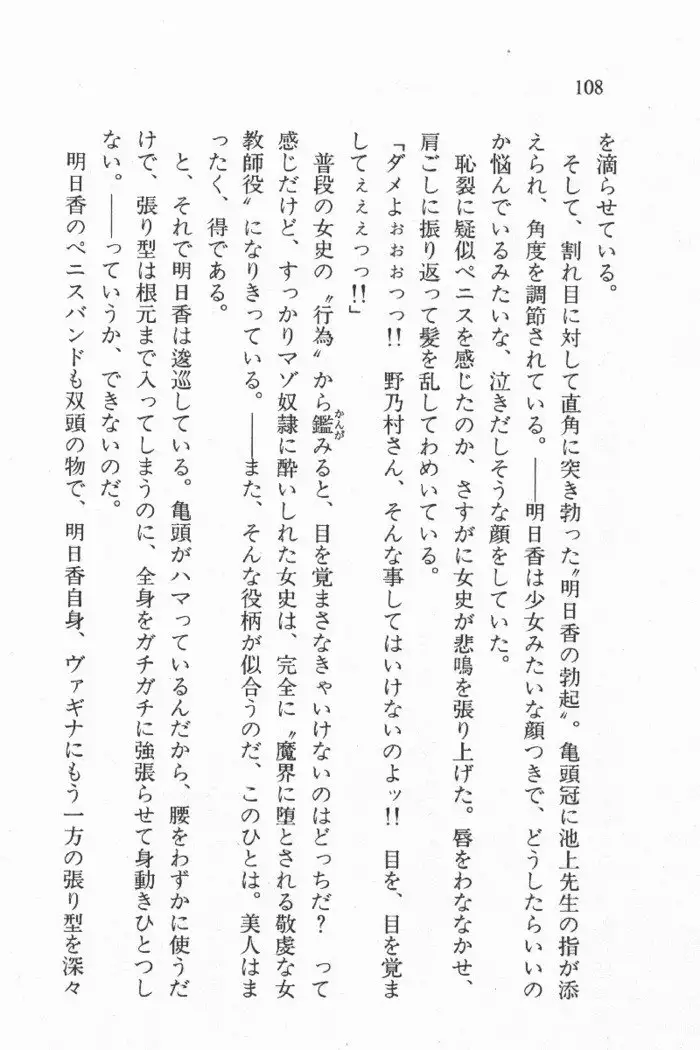 108
を滴らせている。
そして、割れ目に対して直角に突き勃った〝明日香の勃起〟。亀頭冠に池上先生の指が添
えられ、角度を調節されている。――明日香は少女みたいな顔つきで、どうしたらいいの
か悩んでいるみたいな、泣きだしそうな顔をしていた。
恥裂に疑似ペニスを感じたのか、さすがに女史が悲鳴を張り上げた。唇をわななかせ、
肩ごしに振り返って髪を乱してわめいている。
「ダメよぉぉぉっっ!! 野乃村さん、そんな事してはいけないのよッ!! 目を、目を覚ま
してぇぇぇっっ!!」
普段の女史の〝行為〟から鑑みると、目を覚まさなきゃいけないのはどっちだ? って
かんが
感じだけど、すっかりマゾ奴隷に酔いしれた女史は、完全に〝魔界に堕とされる敬虔な女
教師役〟になりきっている。――また、そんな役柄が似合うのだ、このひとは。美人はま
ったく、得である。
と、それで明日香は逡巡している。亀頭がハマっているんだから、腰をわずかに使うだ
けで、張り型は根元まで入ってしまうのに、全身をガチガチに強張らせて身動きひとつし
ない。――っていうか、できないのだ。
明日香のペニスバンドも双頭の物で、明日香自身、ヴァギナにもう一方の張り型を深々